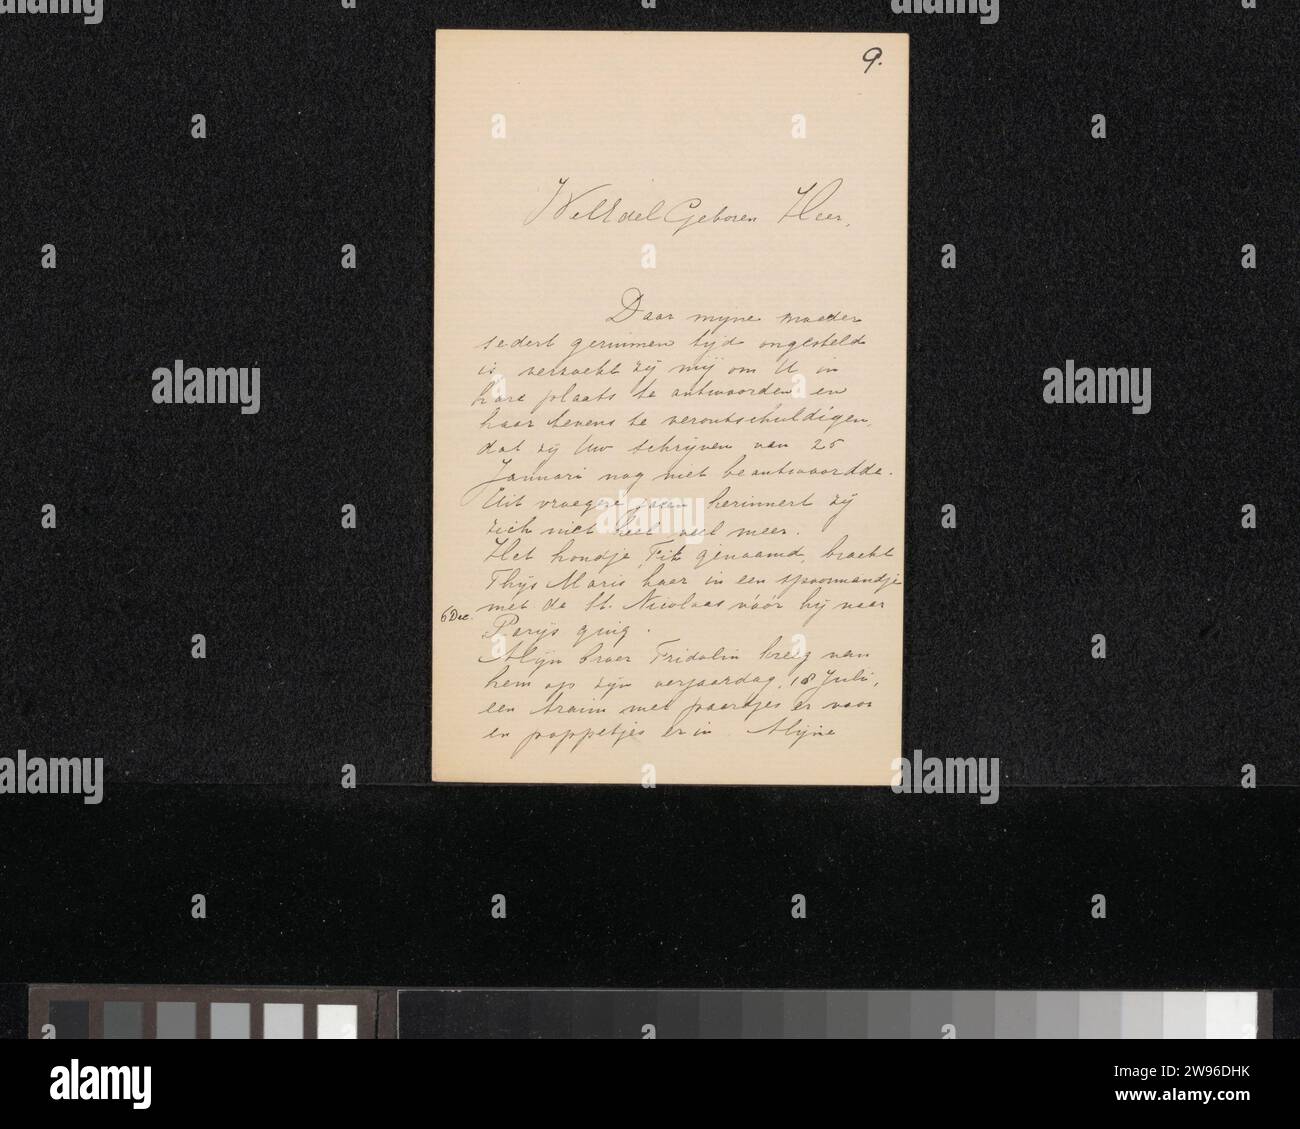 9.
WelEdelGeboren Heer,
Daar myne moeder
sedert geruimen tijd ongesteld
is verzoekt zij mij om U in
hare plaats te antwoorden en
haar tevens te verontschuldigen,
dat zij Uw schrijven van 25
Januari nog niet beantwoordde.
Uit vroegere jaren herinnert zij
zich niet heel veel meer.
Het hondje, Fik genaamd, bracht
Thijs Maris haar in een spoormandje
met de St. Nicolaas vóór hij naar
6 Dec.
Parijs ging.
Mijn broer Fridolin kreeg van
hem op zijn verjaardag, 18 Juli,
een tram met paardjes er voor
en poppetjes er in. Mijne
alamy
alamy
alamy
alamy
alamy
Image ID: 2W96DHK
www.alamy.com